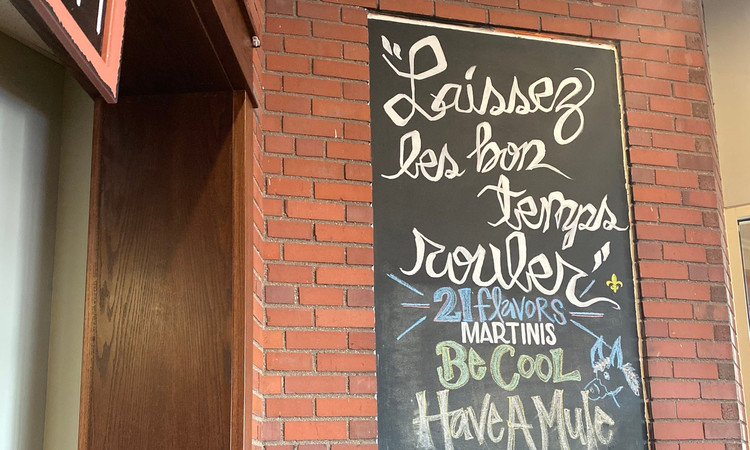 "Laissez
les bon
temps
rouler"
21 flavors
MARTINIS
Be Cool
Have A Mule